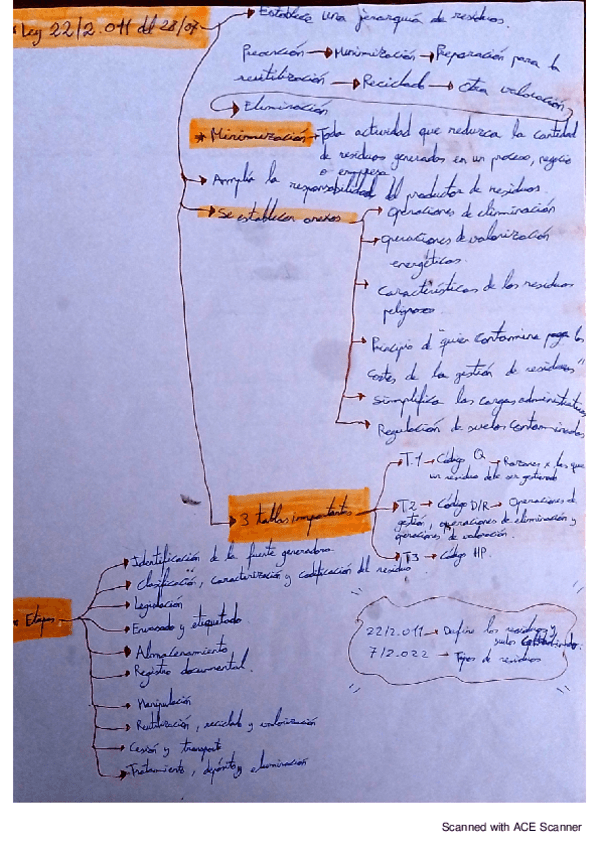 * Ley 22/2.011 del 28/07
→ Establece una jerarquía de residuos.
Prevención → Minimización → Preparación para la
reutilización → Reciclado → Otra valoración
→ Eliminación
* Minimización → Toda actividad que reduzca la cantidad
de residuos generados en un proceso, negocio
o empresa.
→ Amplía la responsabilidad del productor de residuos.
→ Se establecen anexos
→ Operaciones de eliminación
→ Operaciones de valorización
energéticas.
→ Características de los residuos
peligrosos
→ Principio d "quien contamina paga los
costes de la gestión de residuos"
→ Simplifica las cargas administrativas
→ Regulación de suelos contaminados
→ 3 tablas importantes
→ T.1 → Código Q → Razones x las que
un residuo debe ser gestionado
→ T2 → Código D/R → Operaciones de
gestión, operaciones de eliminación y
operaciones de valoración.
→ T3 → Código HP.
* Etapas
→ Identificación de la fuente generadora.
→ Clasificación, caracterización y codificación del residuo
→ Legislación
→ Envasado y etiquetado
→ Almacenamiento
→ Registro documental.
→ Manipulación
→ Reutilización, reciclado y valorización
→ Cesión y transporte
→ Tratamiento, depósito y eliminación
22/2.011 → Define los residuos y
suelos contaminados.
7/2.022 → Tipos de residuos
Scanned with ACE Scanner